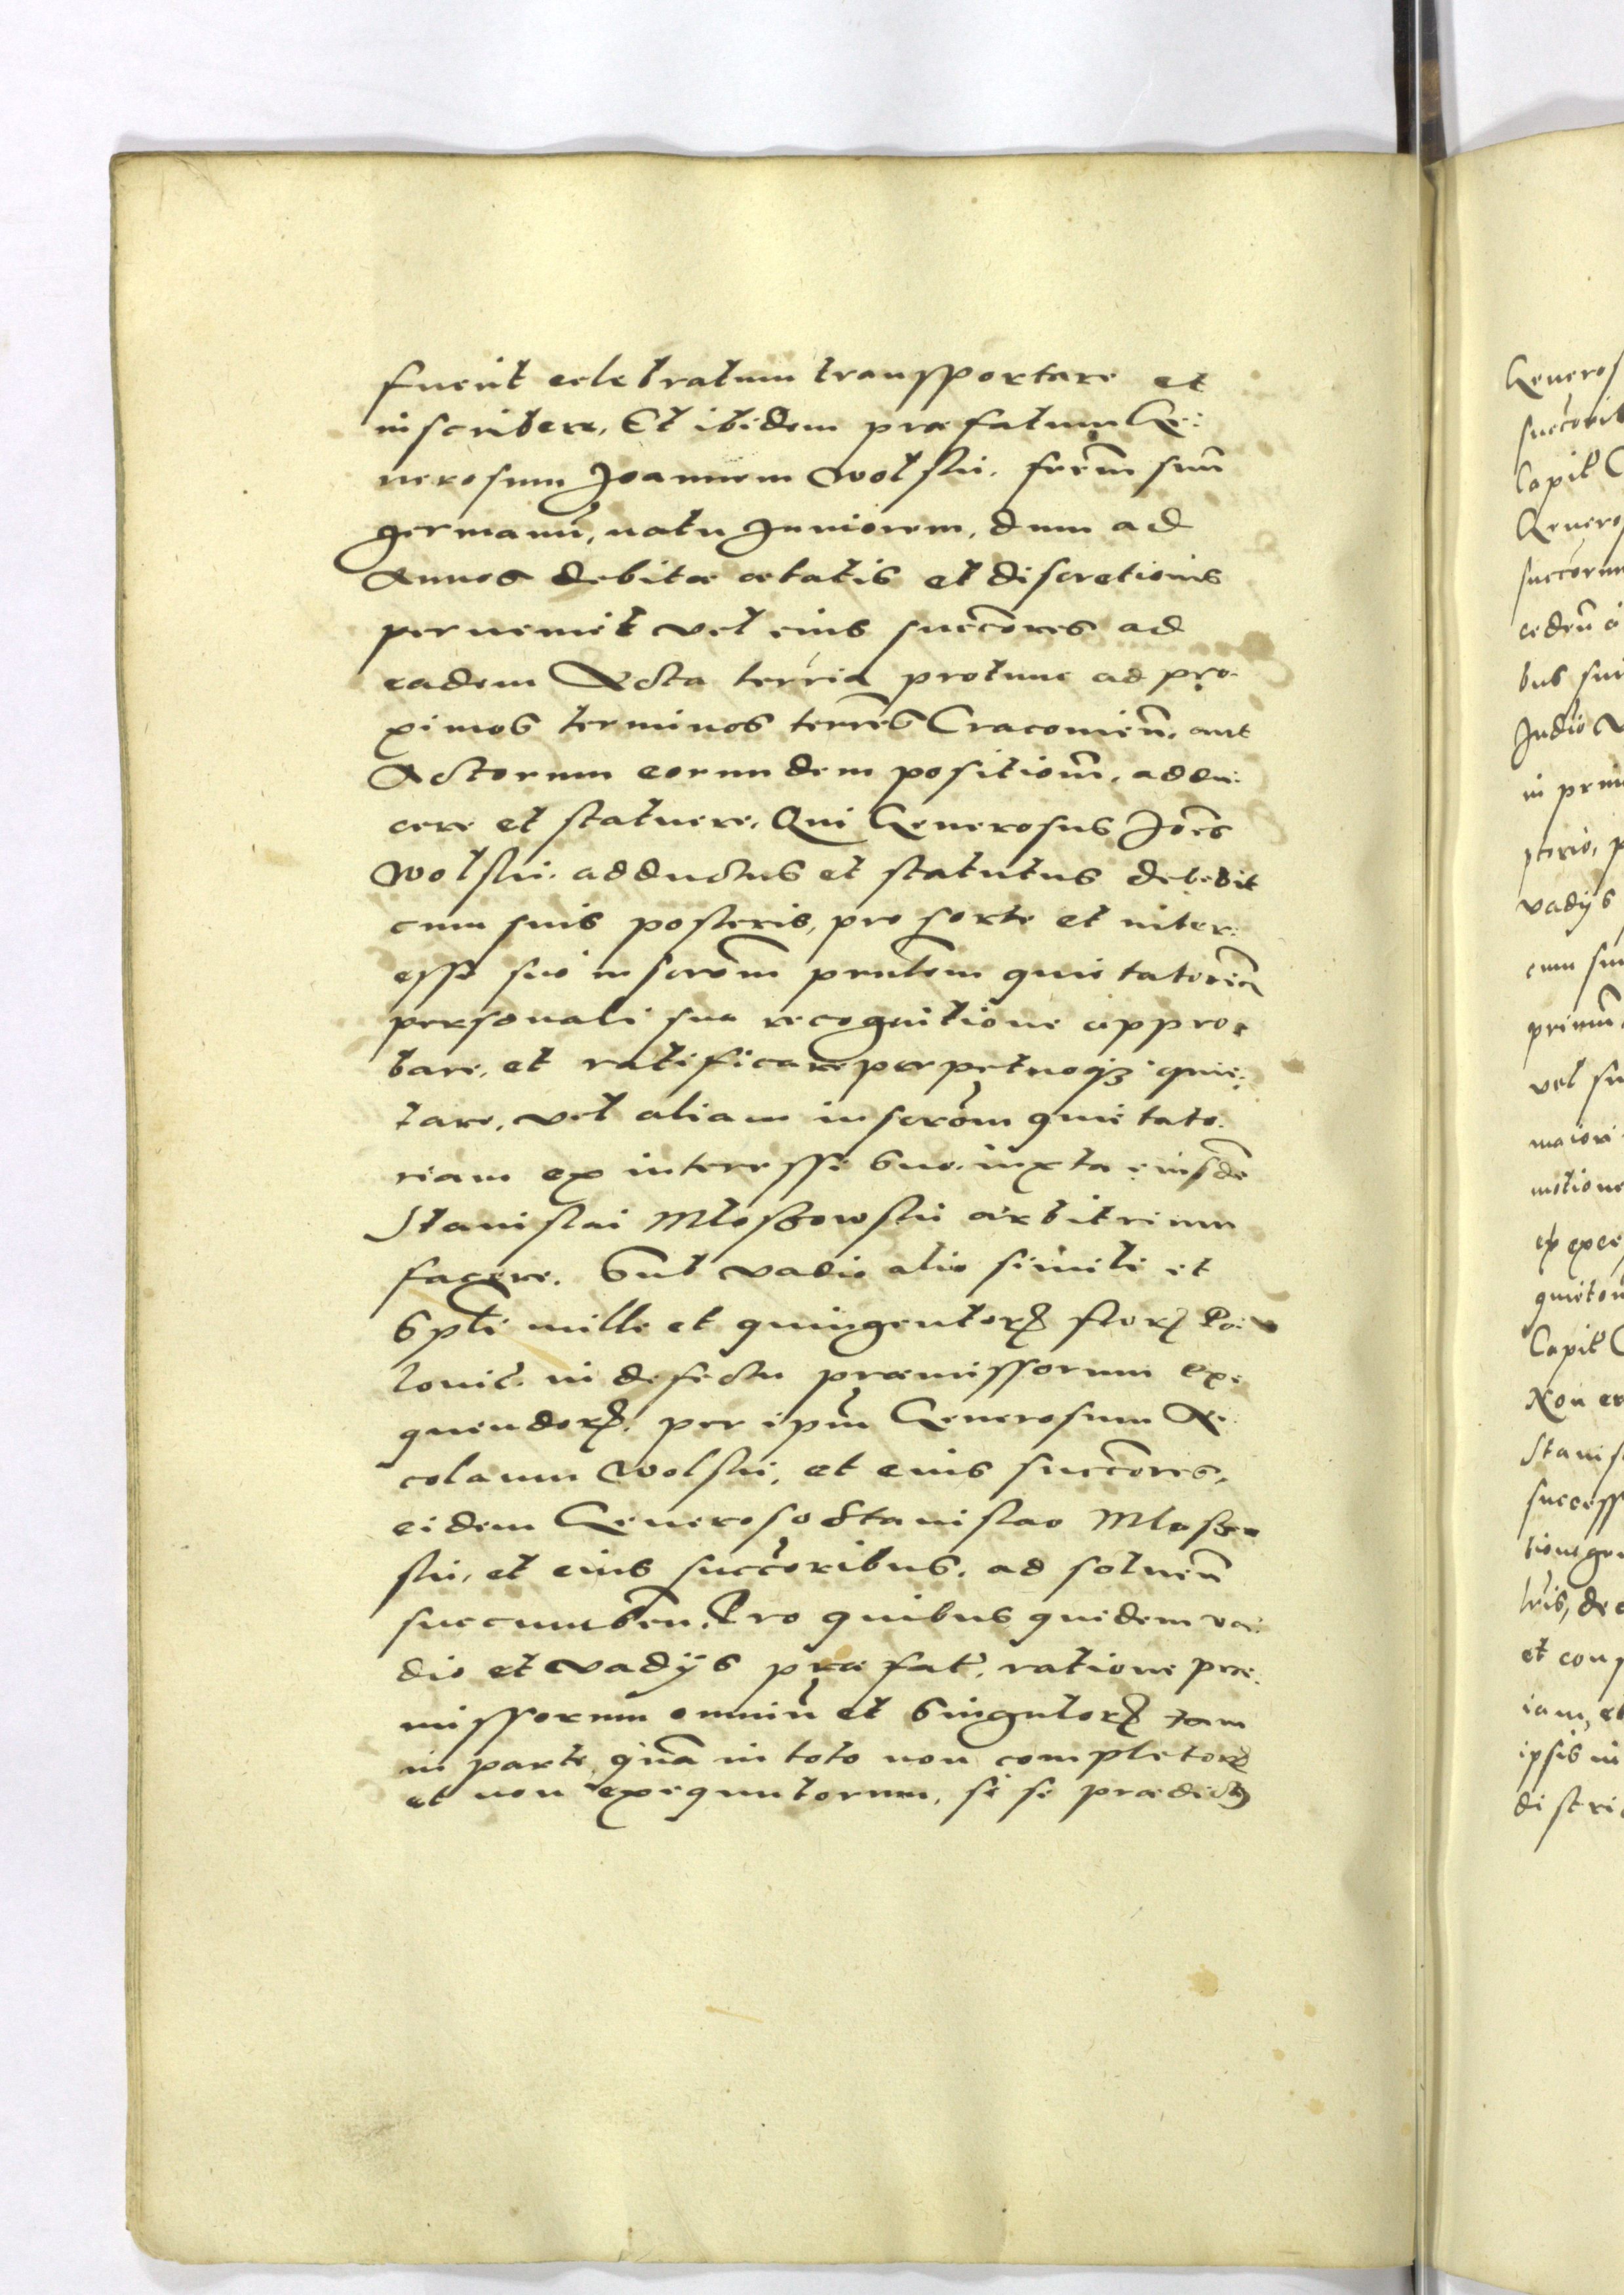 fuerit celebratum transsportare et
inscribere, Et ibidem præfatum Ge:
nerosum Joannem Wolski. frēm suū
germanū, natu Juniorem, dum ad
Annos debitæ ætatis et discretionis
pervenerit vel eius succōres ad
eadem Acta terrīa protunc ad pro:
ximos terminos terrēs Cracovieñ. aut
Actorum eorundem positionē, addu:
cere et statuere, Qui Generosus Joēs
Wolski. adductus et statutus debebit
cum suis posteris, pro sorte et inter:
esse suo inscrōem pñtem quietatoriā
personali sua recognitione appro:
bare, et ratificare perpetuoqꝫ quie:
tare, vel aliam inscrōm quietato:
riam ex interesse suo. iuxta eiusdē
Stanislai Mloszowski arbitrium
facere. Sub vadio alio simili et
spāli mille et quingentorꝝ florꝝ Po:
loniē. in defectu præmissorum exe
quendorꝝ. per ipsū Generosum Ni
colaum Wolski, et eius succōres,
eidem Generoso Stanislao Mloszow
ski, et eius succōribus. ad solvenū
succumbeñ. Pro quibus quidem va:
dio et vadijs præfat. ratione præ:
missorum omniū et singulorꝝ tam
in parte quā in toto non completorꝝ
et non exequutorum, si se prædictꝰ
Generos
succōrib
Capit
Genero
succorum
cedeñ
bus sui
Judio
in prim
vadijs
cum sui
primū
vel su
maiori
motione
quietom
Capit
Non
Stanis
success
et
ipsis in